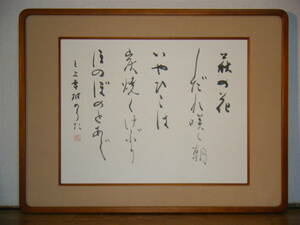 萩の花
しだれ咲く朝
いやひこは
炭焼くけぶり
ほのぼのとあが